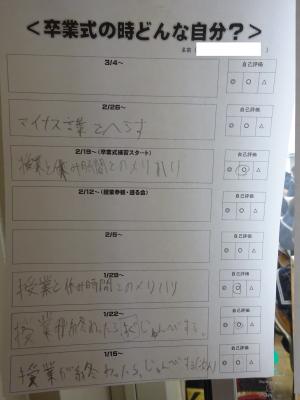 ＜卒業式の時どんな自分？＞
名前（　　　）
3/4～
自己評価
◎ ○ △
2/26～
自己評価
マイナス言葉をへらす
◎ ○ △
2/19～（卒業式練習スタート）
自己評価
授業と休み時間とのメリハリ
◎ ○ △
2/12～（授業参観・送る会）
自己評価
◎ ○ △
2/5～
自己評価
◎ ○ △
1/29～
自己評価
授業と休み時間とのメリハリ
◎ ○ △
1/22～
自己評価
授業が終わったら次じゅんびする。
◎ ○ △
1/15～
自己評価
授業が終わったら、じゅんびする
◎ ○ △